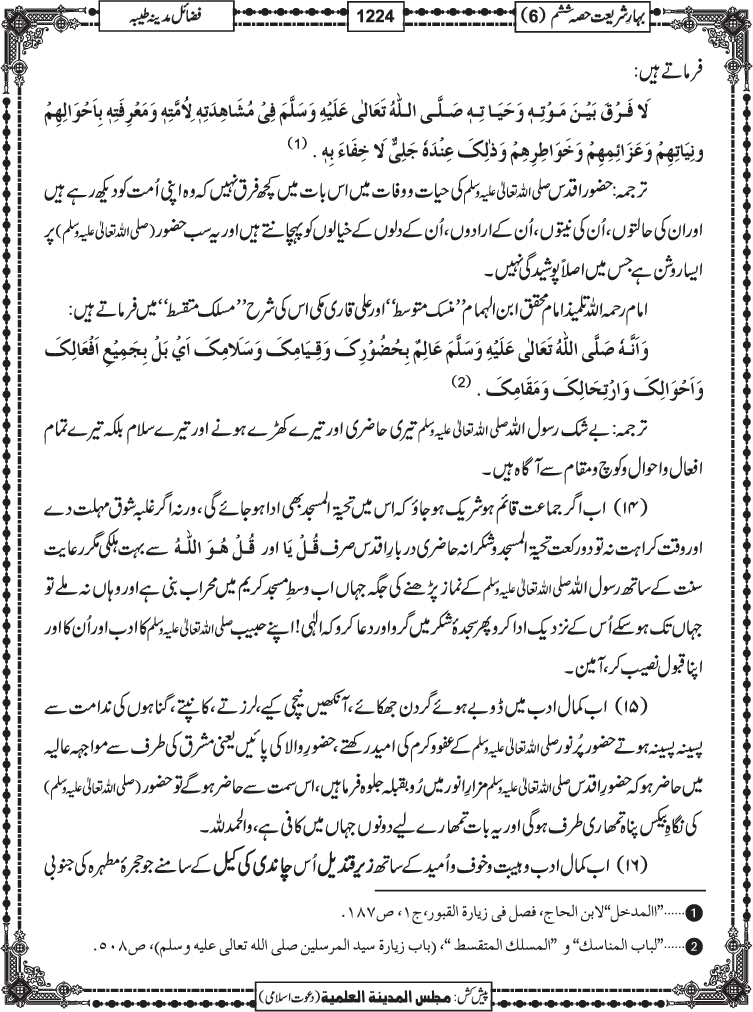 بہارِ شریعت حصہ ششم (6)
1224
فضائل مدینہ طیبہ
فرماتے ہیں:
لَا فَرْقَ بَیْنَ مَوْتِہٖ وَحَیَاتِہٖ صَلَّی اللّٰہُ تَعَالٰی عَلَیْہِ وَسَلَّمَ فِیْ مُشَاهَدَتِہٖ لِاُمَّتِہٖ وَمَعْرِفَتِہٖ بِاَحْوَالِهِمْ
ونِیَاتِهِمْ وَعَزَائِمِهِمْ وَخَوَاطِرِهِمْ وَذٰلِکَ عِنْدَہٗ جَلِیٌّ لَا خِفَاءَ بِہٖ . (1)
ترجمہ: حضور اقدس صلی اللہ تعالیٰ علیہ وسلم کی حیات و وفات میں اس بات میں کچھ فرق نہیں کہ وہ اپنی اُمت کو دیکھ رہے ہیں
اور ان کی حالتوں، اُن کی نیتوں، اُن کے ارادوں، اُن کے دلوں کے خیالوں کو پہچانتے ہیں اور یہ سب حضور (صلی اللہ تعالیٰ علیہ وسلم) پر
ایسا روشن ہے جس میں اصلاً پوشیدگی نہیں۔
امام رحمہ اللہ تلمیذ امام محقق ابن الہمام ”منسک متوسط“ اور علی قاری مکی اس کی شرح ”مسلک متقسط“ میں فرماتے ہیں:
وَاَنَّہٗ صَلَّی اللّٰہُ تَعَالٰی عَلَیْہِ وَسَلَّمَ عَالِمٌ بِحُضُوْرِکَ وَقِیَامِکَ وَسَلَامِکَ اَیْ بَلْ بِجَمِیْعِ اَفْعَالِکَ
وَاَحْوَالِکَ وَارْتِحَالِکَ وَمَقَامِکَ . (2)
ترجمہ: بے شک رسول اللہ صلی اللہ تعالیٰ علیہ وسلم تیری حاضری اور تیرے کھڑے ہونے اور تیرے سلام بلکہ تیرے تمام
افعال و احوال و کوچ و مقام سے آگاہ ہیں۔
(۱۴) اب اگر جماعت قائم ہو شریک ہو جاؤ کہ اس میں تحیۃ المسجد بھی ادا ہو جائے گی، ورنہ اگر غلبہ شوق مہلت دے
اور وقت کراہت نہ ہو تو دو رکعت تحیۃ المسجد و شکرانہ حاضری دربارِ اقدس صرف قُلْ یَا اور قُلْ هُوَ اللّٰہُ سے بہت ہلکی مگر رعایت
سنت کے ساتھ رسول اللہ صلی اللہ تعالیٰ علیہ وسلم کے نماز پڑھنے کی جگہ جہاں اب وسطِ مسجد کریم میں محراب بنی ہے اور وہاں نہ ملے تو
جہاں تک ہو سکے اُس کے نزدیک ادا کرو پھر سجدۂ شکر میں گرو اور دعا کرو کہ الٰہی! اپنے حبیب صلی اللہ تعالیٰ علیہ وسلم کا ادب اور اُن کا اور
اپنا قبول نصیب کر، آمین۔
(۱۵) اب کمال ادب میں ڈوبے ہوئے گردن جھکائے، آنکھیں نیچی کیے، لرزتے، کانپتے، گناہوں کی ندامت سے
پسینہ پسینہ ہوتے حضور پُرنور صلی اللہ تعالیٰ علیہ وسلم کے عفو و کرم کی امید رکھتے، حضورِ والا کی پائیں یعنی مشرق کی طرف سے مواجہہ عالیہ
میں حاضر ہو کہ حضور اقدس صلی اللہ تعالیٰ علیہ وسلم مزارِ انور میں رُو بقبلہ جلوہ فرما ہیں، اس سمت سے حاضر ہو گے تو حضور (صلی اللہ تعالیٰ علیہ وسلم)
کی نگاہِ بیکس پناہ تمہاری طرف ہوگی اور یہ بات تمہارے لیے دونوں جہاں میں کافی ہے، والحمدللہ۔
(۱۶) اب کمال ادب و ہیبت و خوف و اُمید کے ساتھ زیرِ قندیل اُس چاندی کی کیل کے سامنے جو حجرۂ مطہرہ کی جنوبی
1 ......”المدخل“لابن الحاج، فصل فی زیارۃ القبور، ج۱، ص۱۸۷.
2 ......”لباب المناسك“ و ”المسلك المتقسط“، (باب زیارۃ سید المرسلین صلی الله تعالی علیه وسلم)، ص۵۰۸.
پیش کش: مجلس المدینة العلمیة (دعوت اسلامی)